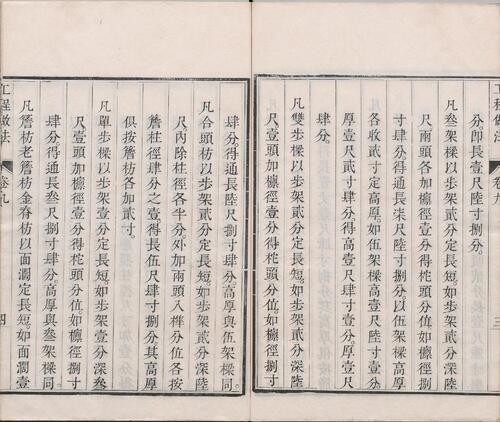 工程做法 卷九 三
分卽長壹尺陸寸捌分。
凡叁架樑以步架貳分定長短。如步架貳分深陸
尺兩頭各加檁徑壹分得柁頭分位。如檁徑捌
寸肆分。得通長柒尺陸寸捌分。以伍架樑高厚
各收貳寸定高厚。如伍架樑高壹尺陸寸壹分。
厚壹尺貳寸肆分。得高壹尺肆寸壹分。厚壹尺
肆分。
凡雙步樑以步架貳分定長短。如步架貳分深陸
尺。壹頭加檁徑壹分得柁頭分位。如檁徑捌寸
肆分。得通長陸尺捌寸肆分。高厚與伍架樑同。
凡合頭枋以步架貳分定長短。如步架貳分深陸
尺。內除柱徑各半分。外加兩頭入榫分位各按
簷柱徑肆分之壹得長伍尺肆寸捌分。其高厚
俱按簷枋各加貳寸。
凡單步樑以步架壹分定長短。如步架壹分深叁
尺壹頭加檁徑壹分得柁頭分位。如檁徑捌寸
肆分。得通長叁尺捌寸肆分。高厚與叁架樑同。
凡簷枋老簷枋金脊枋以面濶定長短。如面濶壹
工程做法 卷九 四